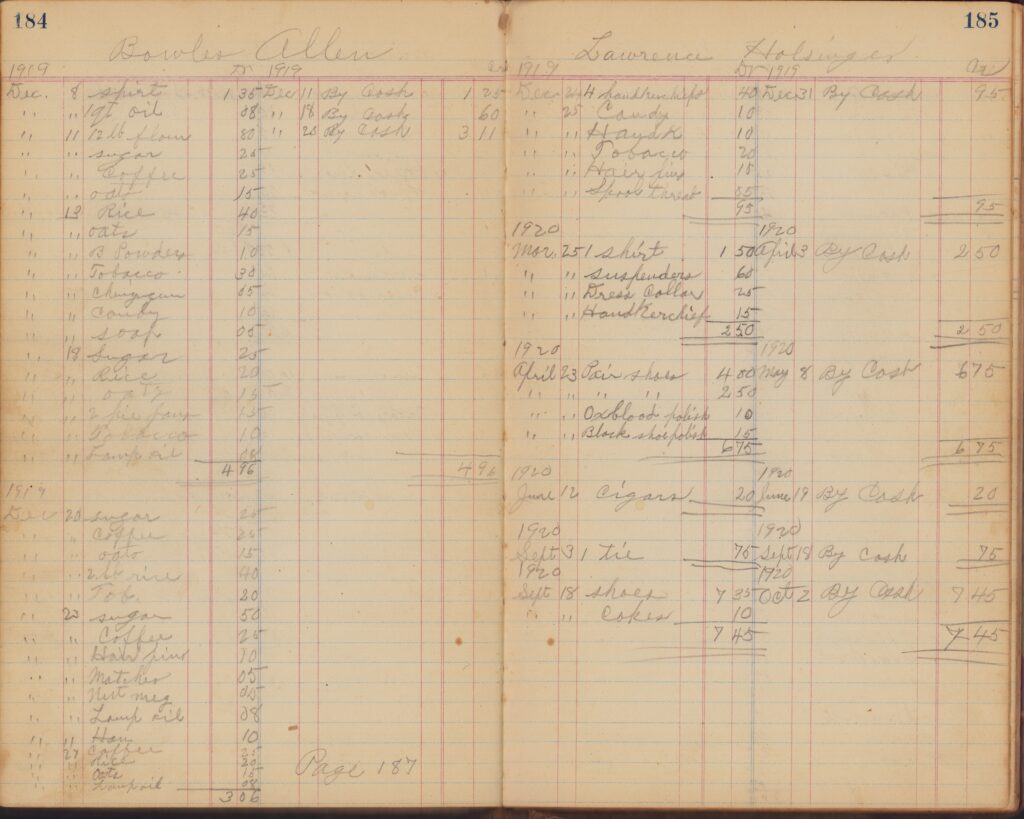 184
Bowles Allen
1919 Dr 1919 Cr
Dec. 8 shirt 1 35 Dec 11 By Cash 1 25
" " 1 qt oil 08 " 18 By Cash 60
" 11 12 lb flour 80 " 20 By Cash 3 11
" " sugar 25
" " Coffee 25
" " oats 15
" 13 Rice 40
" " oats 15
" " B Powder 10
" " Tobacco 30
" " Chewing gum 05
" " Candy 10
" " soap 05
" 18 Sugar 25
" " Rice 20
" " oats 15
" " 2 pie pans 15
" " Tobacco 10
" " Lamp oil 08
4 96 4 96
1919
Dec 20 sugar 25
" " Coffee 25
" " oats 15
" " 2 lb rice 40
" " Tob. 20
" 23 sugar 50
" " Coffee 25
" " Hair pins 10
" " Matches 05
" " Nut meg 05
" " Lamp oil 08
" " 10
" 27 Coffee 25
" " Rice 20
" " Oats 15
" " Lamp oil 08
3 06
Page 187
185
Lawrence Holsinger
1919 Dr 1919 Cr
Dec 24 4 handkerchiefs 40 Dec 31 By Cash 95
" 25 Candy 10
" " 10
" " Tobacco 20
" " Hair pins 15
" " Spool thread 05
95 95
1920 1920
Mar. 25 1 shirt 1 50 April 3 By Cash 2 50
" " suspenders 60
" " Dress Collar 25
" " Handkerchief 15
2 50 2 50
1920 1920
April 23 Pair shoes 4 00 May 8 By Cash 6 75
" " " " 2 50
" " Oxblood polish 10
" " Black shoe polish 15
6 75 6 75
1920 1920
June 12 Cigars 20 June 19 By Cash 20
1920 1920
Sept. 3 1 tie 75 Sept 18 By Cash 75
1920 1920
Sept 18 shoes 7 35 Oct 2 By Cash 7 45
" " Cokes 10
7 45 7 45